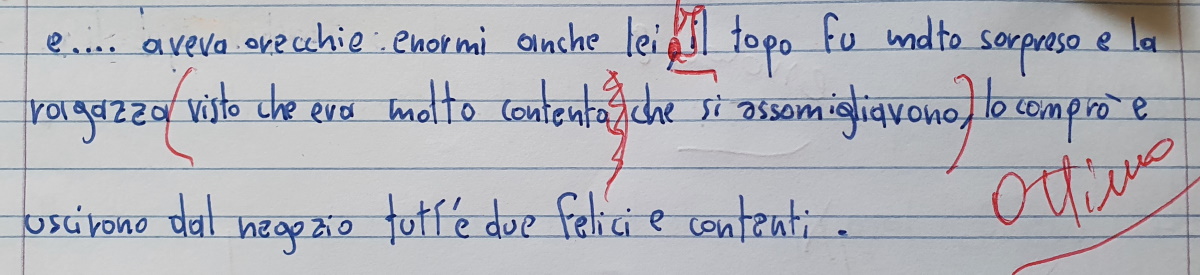 e.... aveva orecchie enormi anche lei. Il topo fu molto sorpreso e la
ragazza (visto che era molto contenta che si assomigliavono) lo comprò e
Ottimo
uscirono dal negozio tutt'e due felici e contenti.